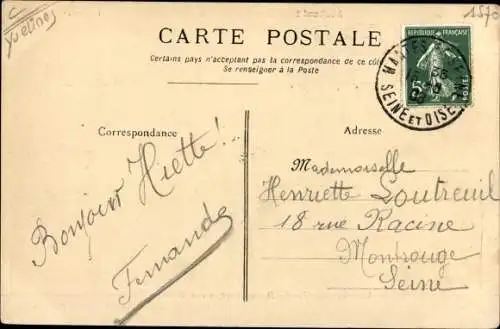 Yvelines
1570
CARTE POSTALE
Certains pays n'acceptant pas la correspondance de ce côté
Se renseigner à la Poste
RÉPUBLIQUE FRANÇAISE
5
POSTES
SEINE ET OISE
Correspondance
Adresse
Bonjour Hiette!
Fernande
Mademoiselle
Henriette Loutreuil
18 rue Racine
Montrouge
Seine